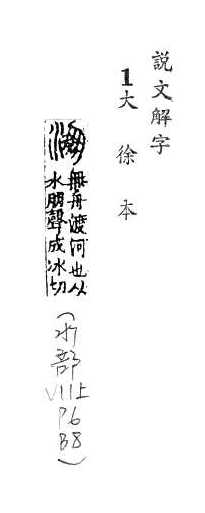 説文解字
1大徐本
淜
無舟渡河也从
水朋聲成冰切
(水部
VII上
P6
B8)